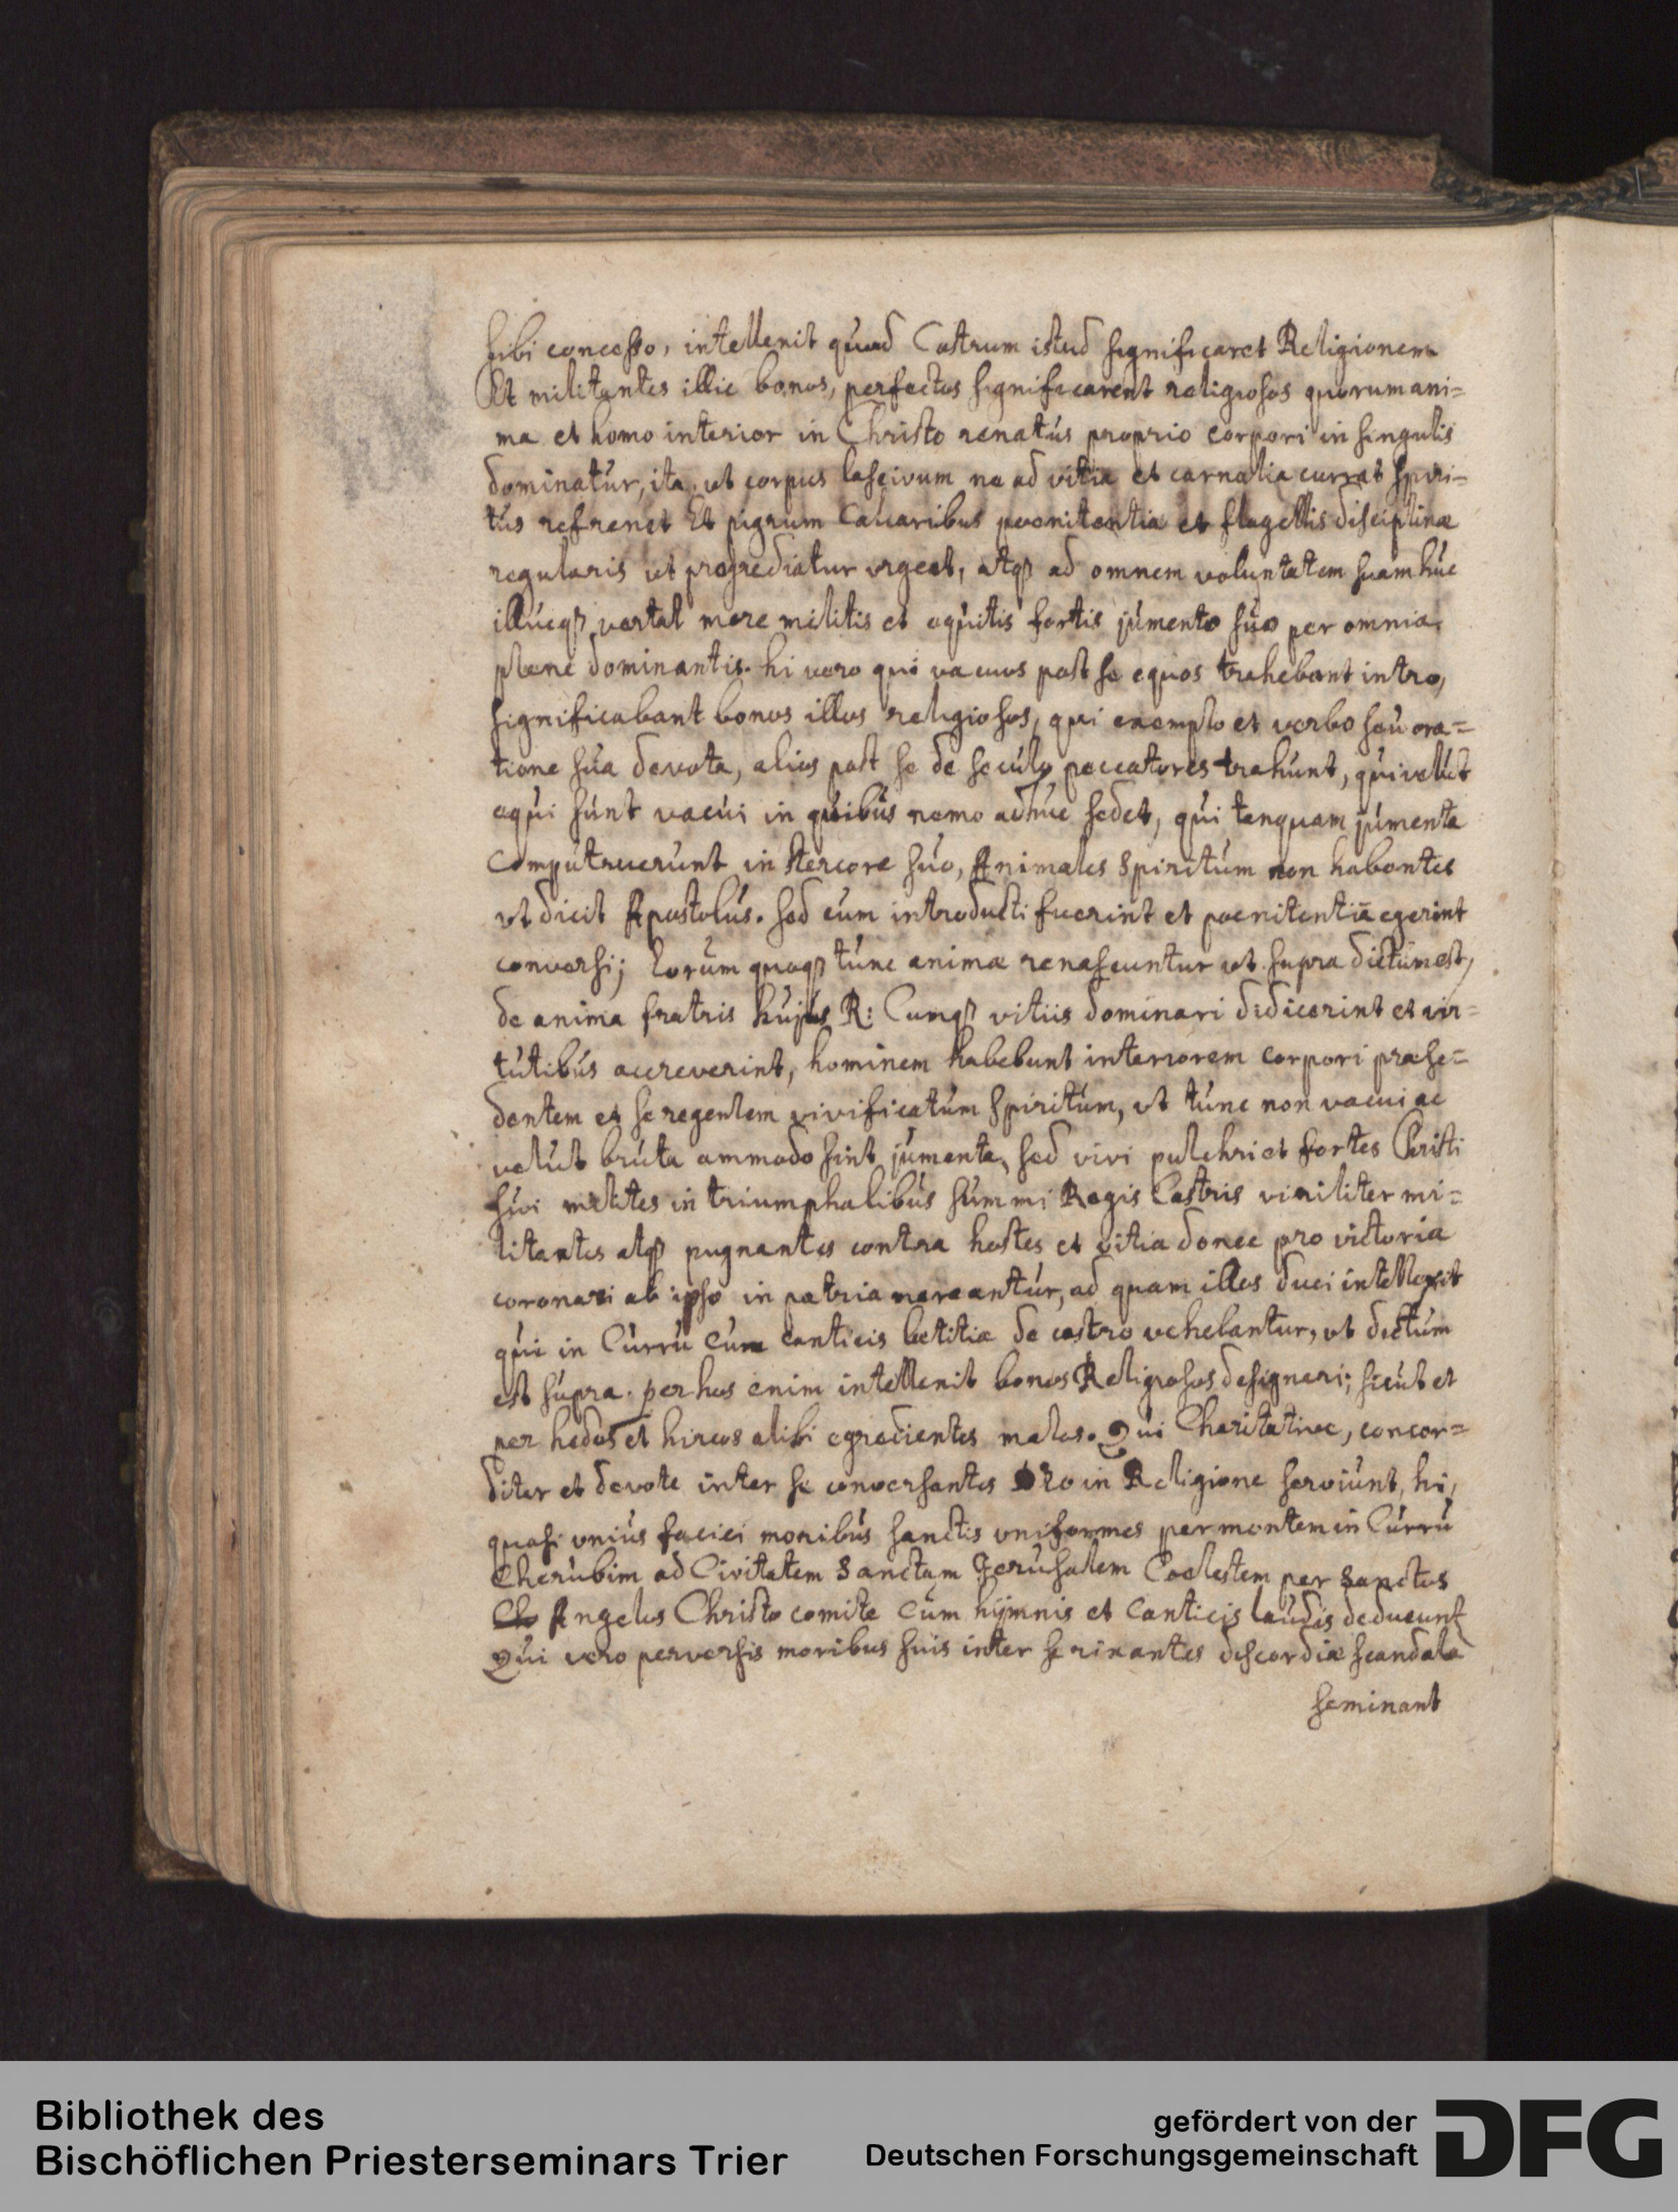 sibi concesso, intellexit quod Castrum istud significaret Religionem
Et militantes illic bonos, perfectos significarent religiosos quorum ani=
ma et homo interior in Christo renatús proprio corpori in singulis
dominatúr, ita ut corpus lascivum ne ad vitia et carnalia currat spiri=
tús refrenet Et pigrum calcaribus poenitentiæ et flagellis disciplinæ
regularis ut progrediatur vrgeat, atq3 ad omnem voluntatem suam húc
illúcq3 vertat more militis et equitis fortis júmento súo per omnia
plene dominantis. hi vero qui vacuos post se equos trahebant intro,
significabant bonos illos religiosos, qui exemplo et verbo seú ora=
tione súa devota, alios post se de secúlo peccatores trahúnt, qui velút
equi súnt vacúi in quibús nemo adhúc sedet, qui tanquam júmenta
computruerúnt in stercore súo, Animales Spiritúm non habentes
vt dicit Apostolús. sed cum introducti fúerint et poenitentiã egerint
conversi; Eorúm quoq3 túnc animæ renascuntur ut supra dictúm est,
de anima fratris hújus R: Cumq3 vitiis dominari didicerint et vir=
tútibús accreverint, hominem habebunt interiorem corpori præse=
dentem et se regentem vivificatúm spiritúm, vt túnc non vacui ac
velút brúta ammodo sint júmenta, sed vivi pulchri et fortes Christi
súi milites in triumphalibús súmmi Regis Castris viriliter mi=
litantes atq3 pugnantes contra hostes et vitia donec pro victoria
coronari ab ipso in patria mereantúr, ad quam illos duci intellexit
qúi in Cúrrú cum canticis lætitiæ de castro vehebantur, vt dictúm
est súpra. per hos enim intellexit bonos Religiosos designari; sicút et
per hædos et hircos alibi egredientes malos. Qui Charitative, concor=
diter et devote inter se conversantes Deo in Religione serviúnt, hi,
quasi vniús faciei moribús sanctis vniformes per montem in Cúrrú
Cherúbim ad Civitatem Sanctam Jerúsalem Coelestem per sanctos
Ch Angelos Christo comite cúm hijmnis et Canticis laúdis deducunt
Qui vero perversis moribus suis inter se rixantes discordiæ scandala
seminant
Bibliothek des
Bischöflichen Priesterseminars Trier
gefördert von der
Deutschen Forschungsgemeinschaft
DFG